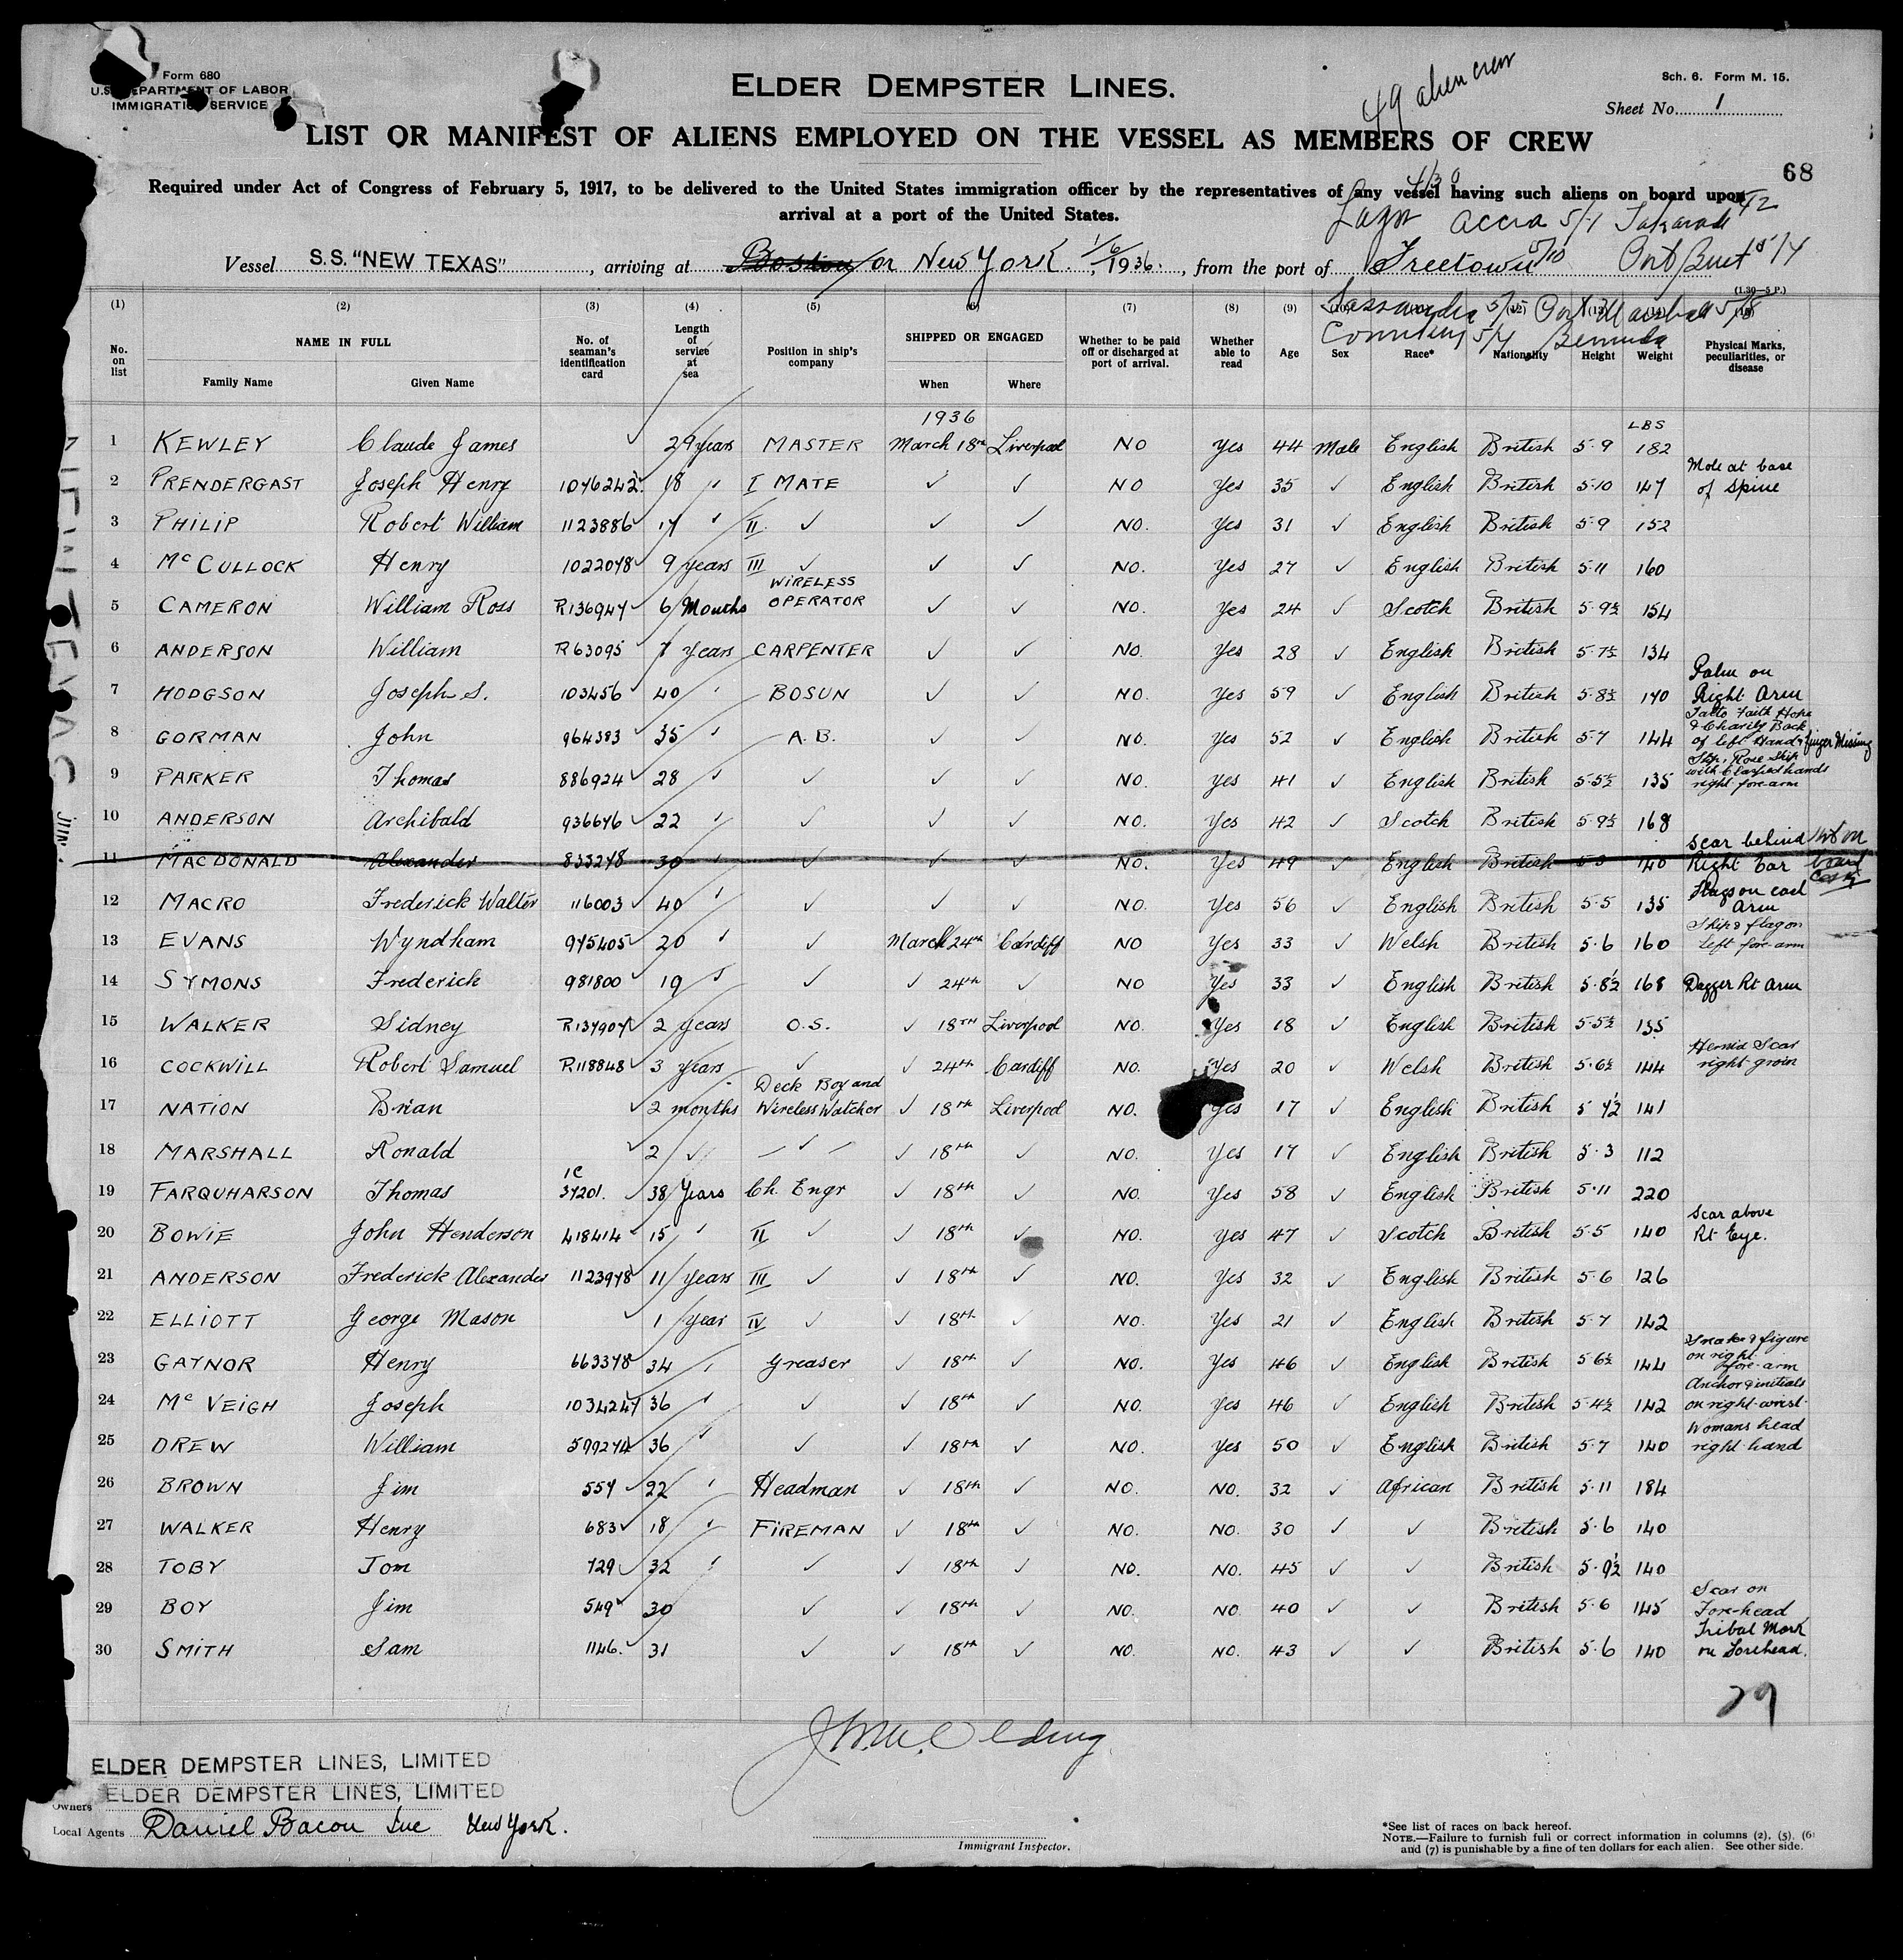 Form 680
U.S. DEPARTMENT OF LABOR
IMMIGRATION SERVICE
ELDER DEMPSTER LINES.
49 alien crew
Sch. 6. Form M. 15.
Sheet No. 1
LIST OR MANIFEST OF ALIENS EMPLOYED ON THE VESSEL AS MEMBERS OF CREW
68
Required under Act of Congress of February 5, 1917, to be delivered to the United States immigration officer by the representatives of any vessel having such aliens on board upon
arrival at a port of the United States.
Accra 5/1
Vessel S.S. "NEW TEXAS", arriving at Boston or New York. 1/6/1936., from the port of Freetown 5/10
(1.30—5 P.)
Bermuda
(1) (2) (3) (4) (5) (6) (7) (8) (9)
No. on list
NAME IN FULL
Family Name Given Name
No. of seaman's identification card
Length of service at sea
Position in ship's company
SHIPPED OR ENGAGED
When Where
Whether to be paid off or discharged at port of arrival.
Whether able to read
Age Sex Race* Nationality Height Weight
Physical Marks, peculiarities, or disease
1936 LBS
1 KEWLEY Claude James 29 years MASTER March 18th Liverpool NO Yes 44 Male English British 5·9 182
2 PRENDERGAST Joseph Henry 1046242 18 " I MATE ✓ ✓ NO Yes 35 ✓ English British 5·10 147 Mole at base of Spine
3 PHILIP Robert William 1123886 17 " II ✓ ✓ ✓ NO. Yes 31 ✓ English British 5·9 152
4 McCULLOCK Henry 1022078 9 years III ✓ ✓ ✓ NO. Yes 27 ✓ English British 5·11 160
5 CAMERON William Ross R136947 6 Months WIRELESS OPERATOR ✓ ✓ NO. Yes 24 ✓ Scotch British 5·9½ 154
6 ANDERSON William R63095 7 years CARPENTER ✓ ✓ NO. Yes 28 ✓ English British 5·7½ 134
7 HODGSON Joseph S. 103456 40 " BOSUN ✓ ✓ NO. Yes 59 ✓ English British 5·8½ 140 Palm on Right Arm
8 GORMAN John 964383 35 " A.B. ✓ ✓ NO. Yes 52 ✓ English British 5·7 144 Tatto Faith Hope & Charity Back of left Hand & finger Missing
9 PARKER Thomas 886924 28 " ✓ ✓ ✓ NO. Yes 41 ✓ English British 5·5½ 135 Ship, Rose Ship with Clasped hands right fore-arm
10 ANDERSON Archibald 936646 22 " ✓ ✓ ✓ NO. Yes 42 ✓ Scotch British 5·9½ 168
11 MACDONALD Alexander 833248 30 ✓ ✓ ✓ NO. Yes 49 ✓ English British 140 Scar behind Right Ear Not on board
12 MACRO Frederick Walter 116003 40 " ✓ ✓ ✓ NO. Yes 56 ✓ English British 5·5 135 Flags on each Arm
13 EVANS Wyndham 975405 20 " ✓ March 24th Cardiff NO Yes 33 ✓ Welsh British 5·6 160 Ship & flag on Left fore-arm
14 SYMONS Frederick 981800 19 " ✓ ✓ 24th ✓ NO Yes 33 ✓ English British 5·8½ 168 Dagger Rt Arm
15 WALKER Sidney R134907 2 years O.S. ✓ 18TH Liverpool NO. Yes 18 ✓ English British 5·5½ 135
16 COCKWILL Robert Samuel R.118848 3 years ✓ ✓ 24th Cardiff NO. Yes 20 ✓ Welsh British 5·6½ 144 Hernia Scar right groin
17 NATION Brian 2 months Deck Boy and Wireless Watcher ✓ 18th Liverpool NO. Yes 17 ✓ English British 141
18 MARSHALL Ronald 2 ✓ ✓ ✓ 18th ✓ NO. Yes 17 ✓ English British 5·3 112
19 FARQUHARSON Thomas 1C 37201. 38 Years Ch. Engr ✓ 18th ✓ NO. Yes 58 ✓ English British 5·11 220
20 BOWIE John Henderson 418414 15 " II ✓ ✓ 18th ✓ NO. Yes 47 ✓ Scotch British 5·5 140 Scar above Rt Eye.
21 ANDERSON Frederick Alexander 1123978 11 years III ✓ ✓ 18th ✓ NO. Yes 32 ✓ English British 5·6 126
22 ELLIOTT George Mason 1 year IV ✓ ✓ 18th ✓ NO. Yes 21 ✓ English British 5·7 142
23 GAYNOR Henry 663378 34 " Greaser ✓ 18th ✓ NO. Yes 46 ✓ English British 5·6½ 144 Snake & figure on right fore-arm
24 McVEIGH Joseph 1034247 36 " ✓ ✓ 18th ✓ NO. Yes 46 ✓ English British 5·4½ 142 Anchor & initials on right-wrist
25 DREW William 599274 36 " ✓ ✓ 18th ✓ NO. Yes 50 ✓ English British 5·7 140 Womans head right hand
26 BROWN Jim 554 22 " Headman ✓ 18th ✓ NO. NO. 32 ✓ African British 5·11 184
27 WALKER Henry 683 18 " FIREMAN ✓ 18th ✓ NO. NO. 30 ✓ ✓ British 5·6 140
28 TOBY Tom 729 32 " ✓ ✓ 18th ✓ NO. NO. 45 ✓ ✓ British 5·9½ 140
29 BOY Jim 549 30 ✓ ✓ 18th ✓ NO. NO. 40 ✓ ✓ British 5·6 145 Scar on Fore-head
30 SMITH Sam 1146. 31 ✓ ✓ 18th ✓ NO. NO. 43 ✓ ✓ British 5·6 140 Tribal Mark on Forehead.
29
ELDER DEMPSTER LINES, LIMITED
ELDER DEMPSTER LINES, LIMITED
Owners
Local Agents Daniel Bacon Inc New York.
Immigrant Inspector.
*See list of races on back hereof.
NOTE.—Failure to furnish full or correct information in columns (2), (5), (6)
and (7) is punishable by a fine of ten dollars for each alien. See other side.